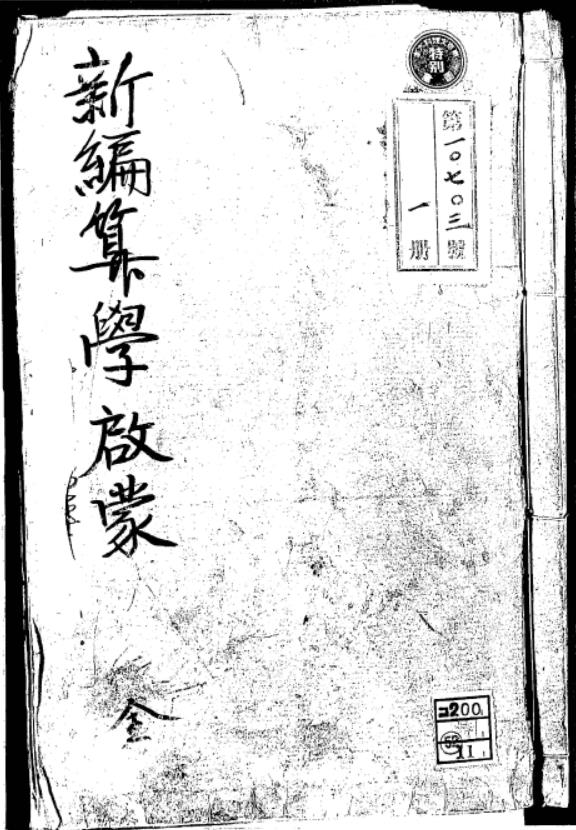 特別
第一〇七〇三號
一冊
新編算學啟蒙
全
コ200
11